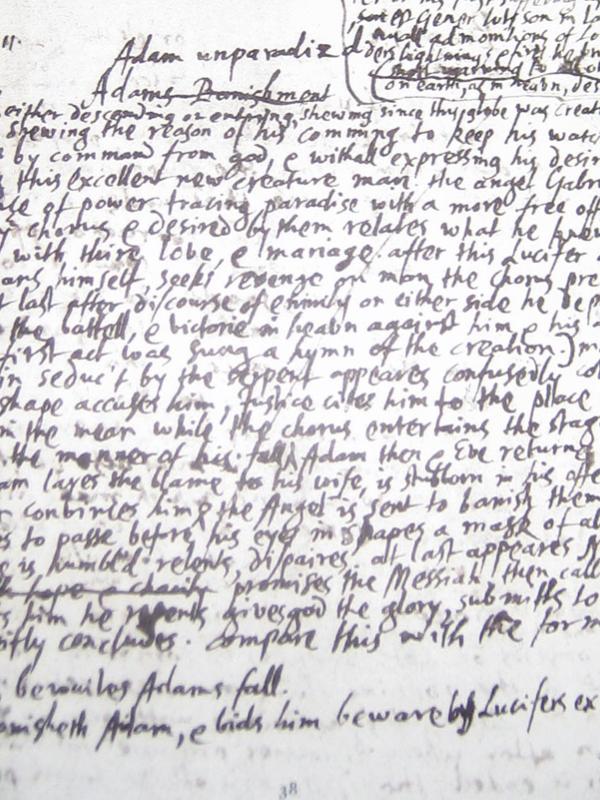 Adam unparadiz'd
Adams Banishment
either, descending or entring, shewing since this globe was creat
shewing the reason of his comming to keep his watch
by command from god, & withall expressing his desire
this excellent new creature man. the angel Gabri
of power tracing paradise with a more free off
chorus & desired by them relates what he knew
with thire love, & mariage. after this Lucifer
himself, seeks revenge on man the chorus pre
last after discourse of enmity on either side he dep
the battell, & victorie in heavn against him &
first act was sung a hymn of the creation)
seduc't by the serpent appears confusedly co
shape accuses him, Justice cites him to the place
in the mean while the chorus entertains the stage
the manner of his fall Adam then & Eve returne
layes the blame to his wife, is stubborn in his offe
convinces him the Angel is sent to banish them
to passe before his eyes in shapes a mask of al
is humbl'd relents, dispaires, at last appeares M
hope & charity promises the Messiah, then call
him he repents gives god the glory, submitts to
concludes. compare this with the form
bewailes Adams fall.
Adam, & bids him beware by Lucifers ex
of the
small admonitions of
on earth, as in heavn, des
38